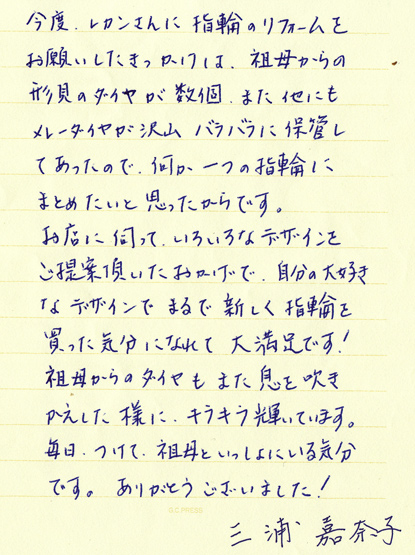 今度、レカンさんに指輪のリフォームを
お願いしたきっかけは、祖母からの
形見のダイヤが数個、また他にも
メレーダイヤが沢山バラバラに保管し
てあったので、何か一つの指輪に
まとめたいと思ったからです。
お店に伺って、いろいろなデザインを
ご提案頂いたおかげで、自分の大好き
なデザインでまるで新しく指輪を
買った気分になれて大満足です!
祖母からのダイヤもまた息を吹き
かえした様に、キラキラ輝いています。
毎日、つけて、祖母といっしょにいる気分
です。ありがとうございました!
G.C.PRESS
三浦 嘉奈子